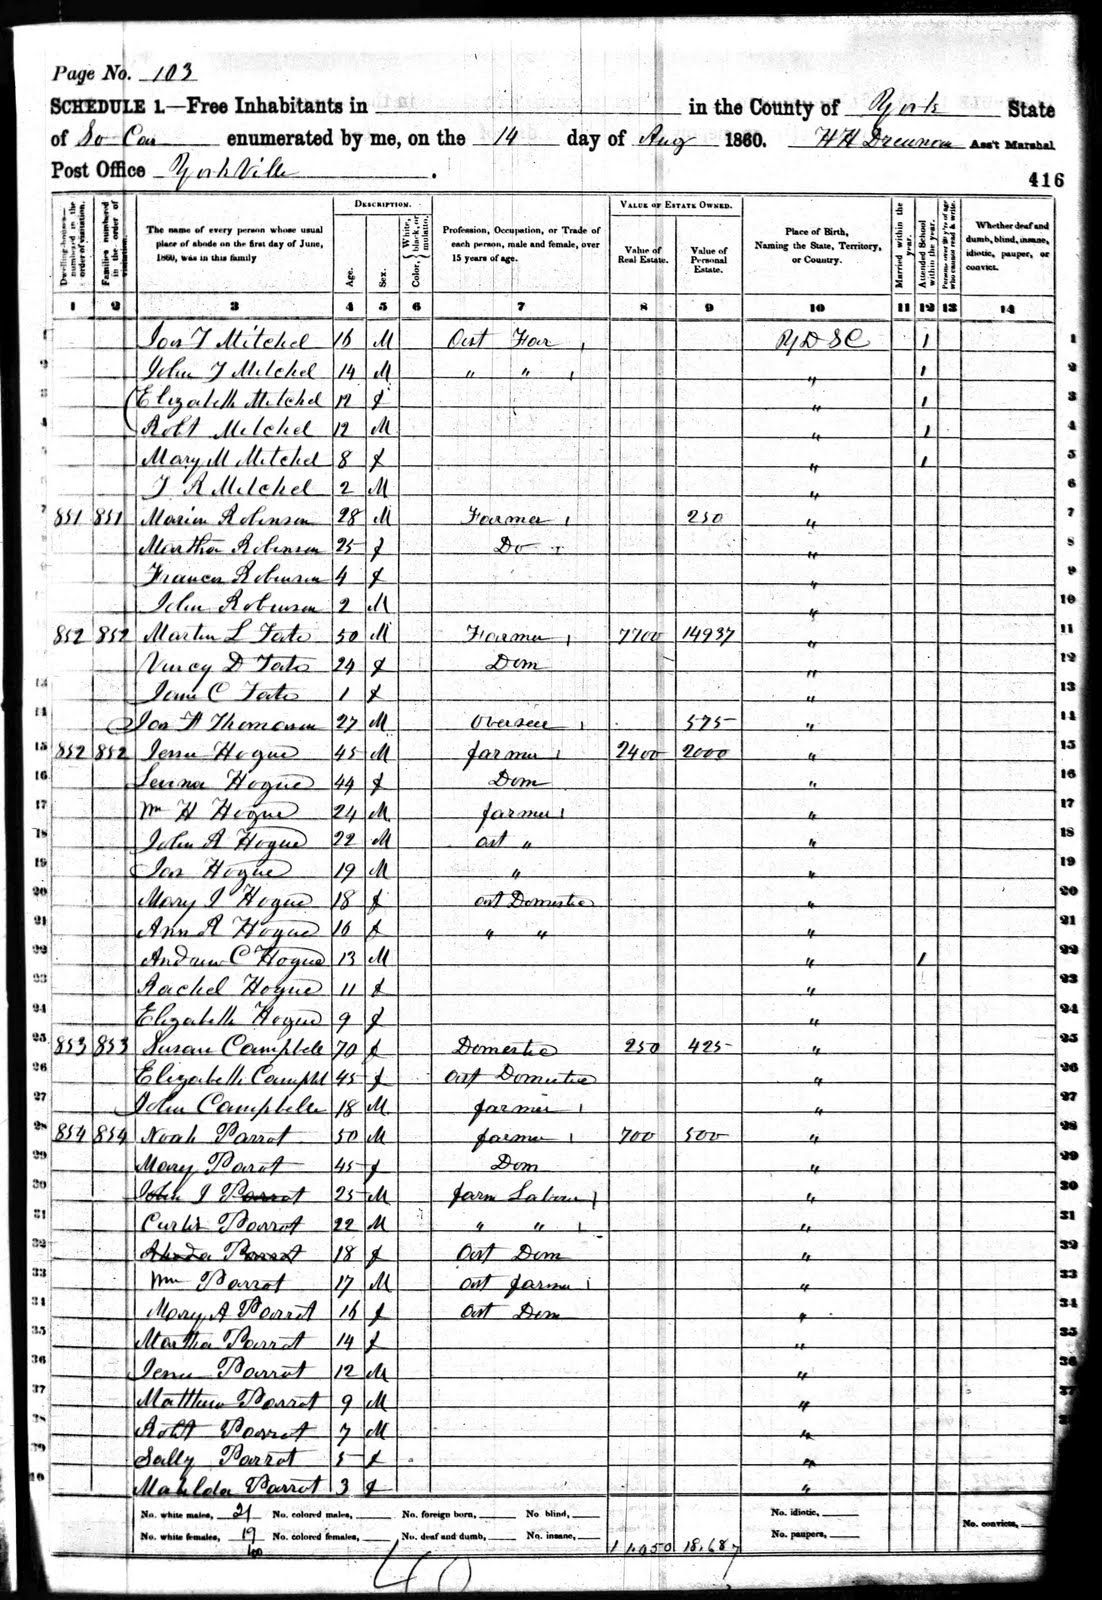 Page No. 103
SCHEDULE 1.—Free Inhabitants in in the County of York State
of So Car enumerated by me, on the 14 day of Aug 1860. Ass't Marshal
Post Office Yorkville
416
DESCRIPTION. VALUE OF ESTATE OWNED.
Dwelling-houses—numbered in the order of visitation. Families numbered in the order of visitation. The name of every person whose usual place of abode on the first day of June, 1860, was in this family Age. Sex. Color, White, black, or mulatto. Profession, Occupation, or Trade of each person, male and female, over 15 years of age. Value of Real Estate. Value of Personal Estate. Place of Birth, Naming the State, Territory, or Country. Married within the year. Attended School within the year. Persons over 20 y'rs of age who cannot read & write. Whether deaf and dumb, blind, insane, idiotic, pauper, or convict.
1 2 3 4 5 6 7 8 9 10 11 12 13 14
1 Jas T Mitchel 16 M Ast Far YDSC 1 1
2 John T Mitchel 14 M " " " 1 2
3 Elizabeth Mitchel 12 f " 1 3
4 Robt Mitchel 12 M " 1 4
5 Mary M Mitchel 8 f " 1 5
T R Mitchel 2 M " 6
7 851 851 Marion Robinson 28 M Farmer 250 " 7
Martha Robinson 25 f Do " 8
Francis Robinson 4 f " 9
John Robinson 2 M " 10
852 852 Martin L Tate 50 M Farmer 7700 14937 " 11
D Tate 24 f Dom " 12
Jane C Tate 1 f " 13
Thomason 27 M Overseer 575 " 14
15 852 852 Jesse Hogue 45 M farmer 2400 2000 " 15
16 Levina Hogue 44 f Dom " 16
17 Wm H Hogue 24 M farmer " 17
18 John A Hogue 22 M ast " " 18
19 Jas Hogue 19 M " " 19
20 Mary J Hogue 18 f ast Domestic " 20
21 Ann R Hogue 16 f " " " 21
22 Andrew C Hogue 13 M " 1 22
23 Rachel Hogue 11 f " 23
24 Elizabeth Hogue 9 f " 24
25 853 853 Susan Campbell 70 f Domestic 250 425 " 25
26 Elizabeth Campbl 45 f Ast Domestic " 26
27 John Campbell 18 M farmer " 27
28 854 854 Noah Parrot 50 M farmer 700 500 " 28
29 Mary Parot 45 f Dom " 29
30 John J Parrot 25 M farm Labour " 30
31 Curtis Parrot 22 M " " " 31
32 Parrot 18 f Ast Dom " 32
33 Wm Parrot 17 M ast farmer " 33
34 Mary A Parrot 16 f Ast Dom " 34
35 Martha Parrot 14 f " 35
36 Jesse Parrot 12 M " 36
37 Matthew Parrot 9 M " 37
Robt Parrot 7 M "
Sally Parrot 5 f "
Matilda Parrot 3 f "
No. white males, 21 No. colored males, No. foreign born, No. blind, No. idiotic,
No. white females, 19 No. colored females, No. deaf and dumb, No. insane, No. paupers, No. convicts,
40 11,050 18,687
40